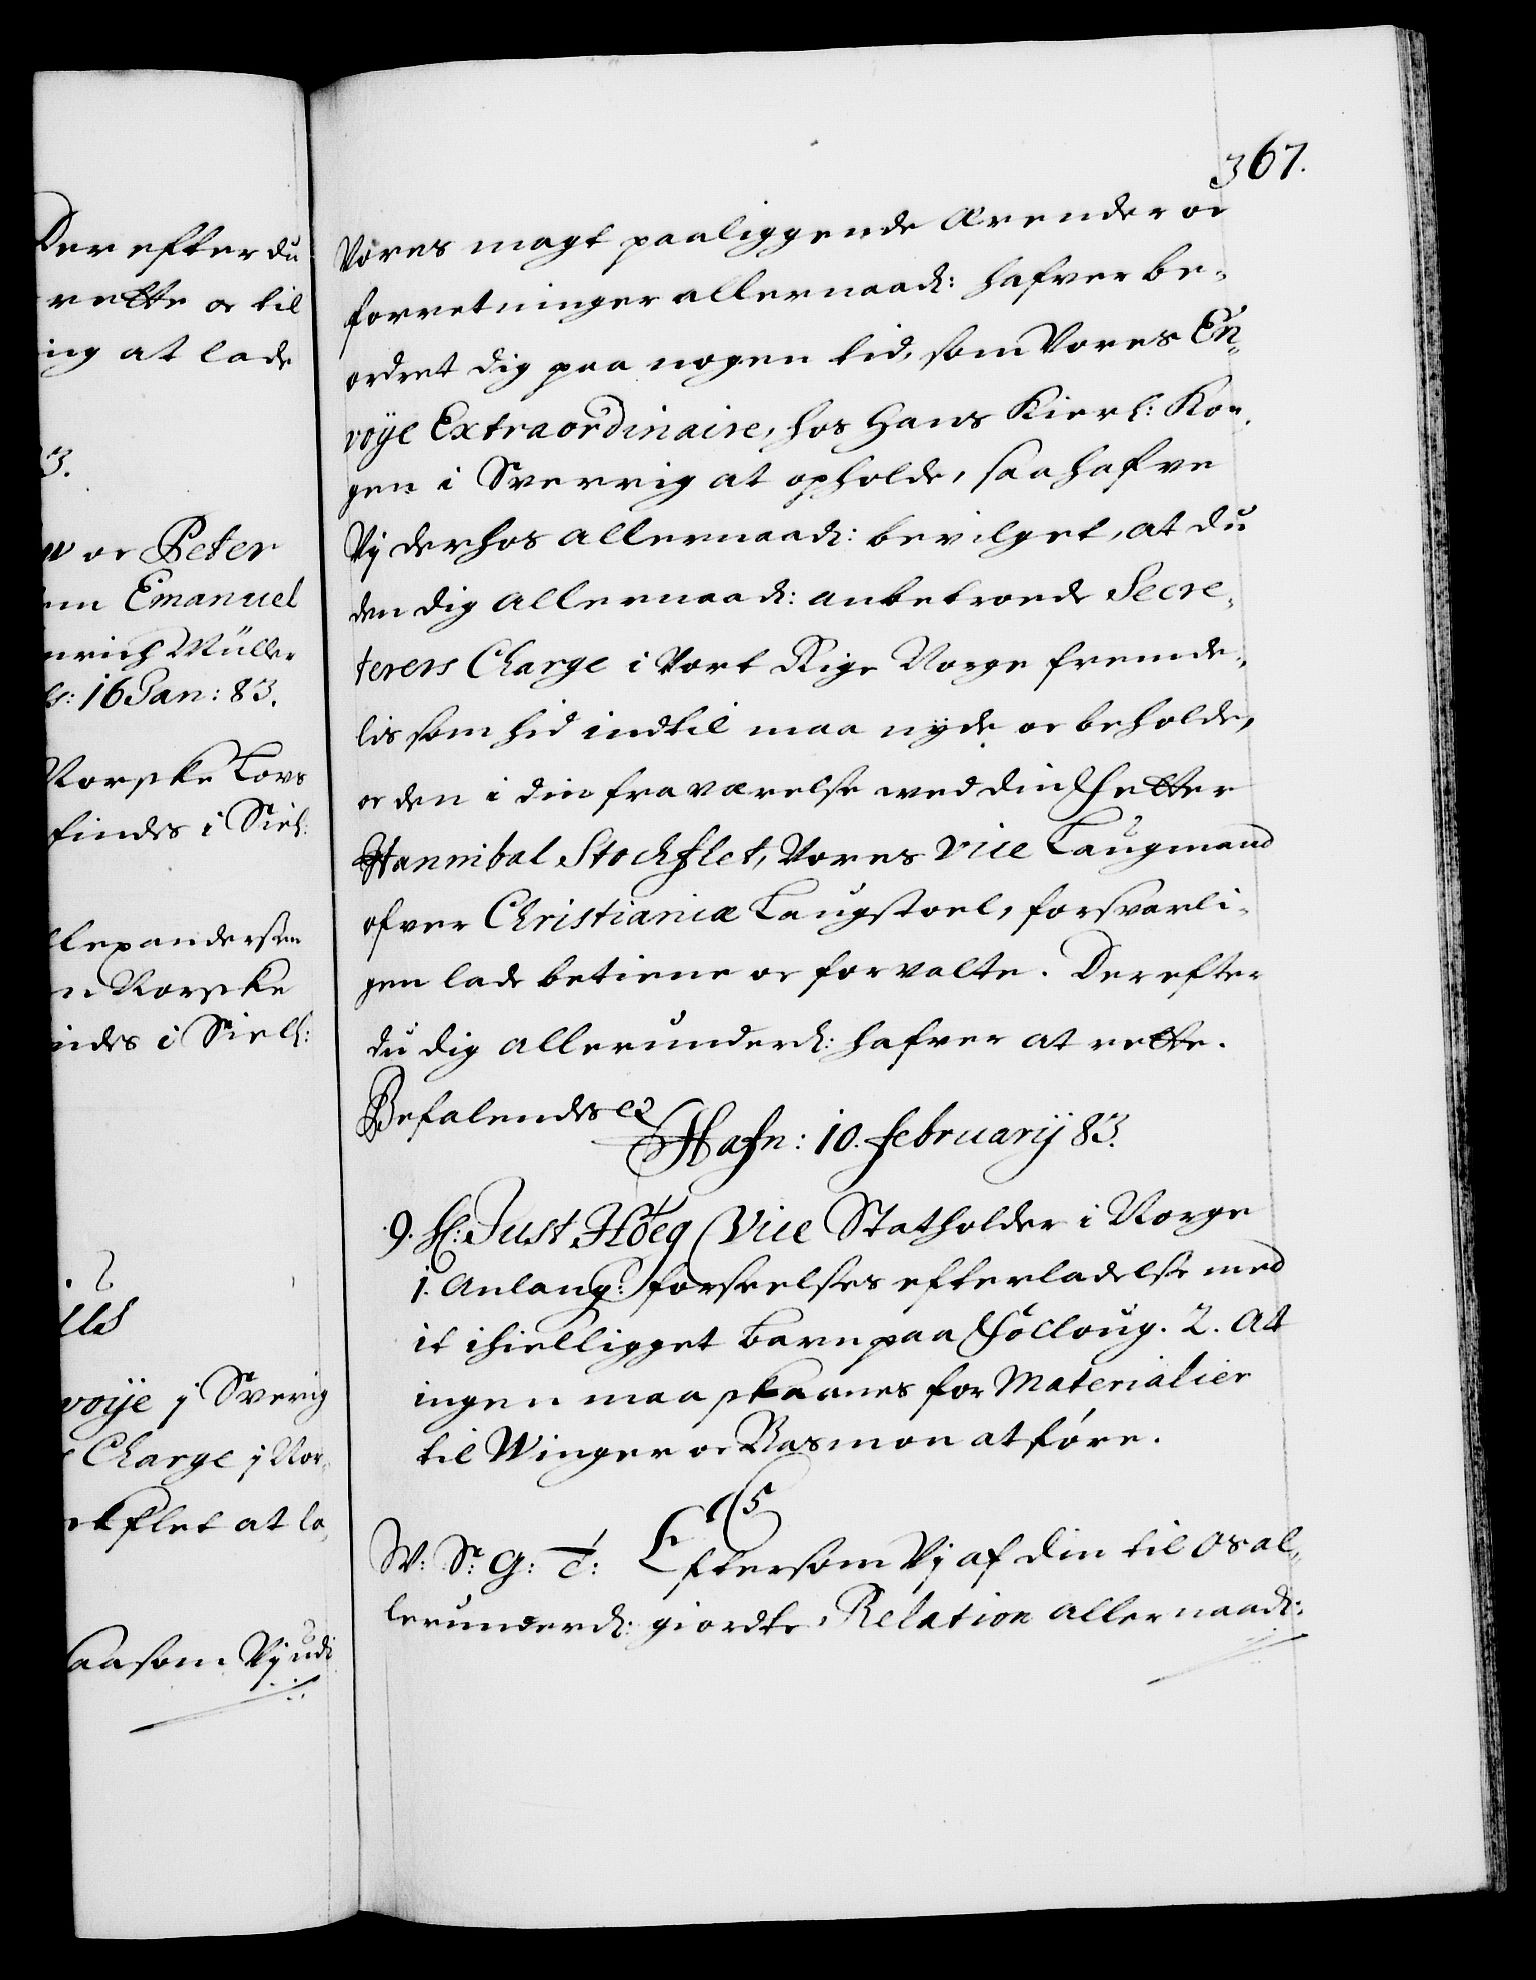 Der efter du
rette oc til
ing at lade
3.
oc Peter
Emanuel
nrich Müller
16 Jan: 83.
Norske Lovs
findes i Siel:
lexandersen
n Norske
indes i Siell:
voije j Sverig
Charge j Nor,
kflet at la,
aasom Vj udi
367.
Vores magt paaliggende ærender oc
forretninger allernaad: hafver be,
ordret dig paa nogen tid, som Vores En,
voye Extraordinaire, hos Hans Kierl: Kon,
gen i Sverrig at opholde, saa hafve
Vj derhos allernaad: bevilget, at du
den dig allernaad: anbetroede Secre,
terers Charge i Vort Rige Norge fremde,
lis som hid indtil maa nyde oc beholde,
oc den i din fraværelse med din Fetter
Hannibal Stockflet, Vores Vice Laugmand
ofver Christianiæ Laugstoel, forsvarli,
gen lade betiene oc forvalte. Der efter
du dig allerunderd: hafver at rette.
Befalendes
Hafn: 10. februarij 83.
9. H: Just Höeg Vice Statholder i Norge
1. Anlang: forseelses efterladelse med
it ihielligget barn paa Folloug. 2. At
ingen maa skaanes for Materialier
til Winger oc Basmon at före.
C 5
W: S: G: T: Eftersom Vj af din til os al,
lerunderd: giordte Relation allernaad: